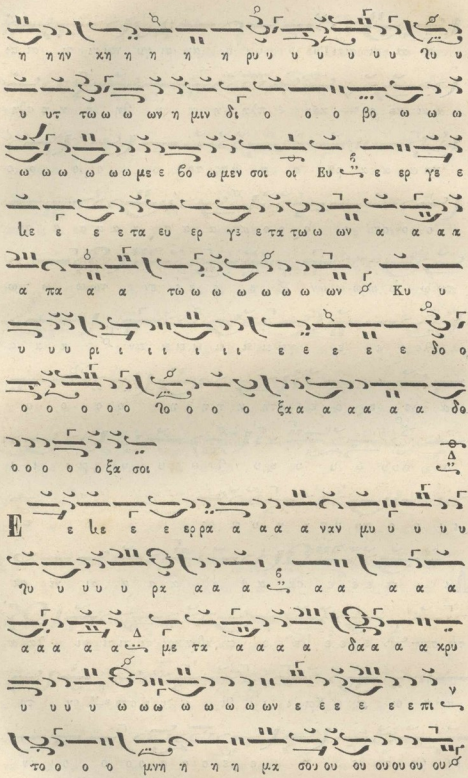 η η ην κη η η η η ρυ υ υ υ υ υ υ λυ υ
υ υτ τω ω ω ων η μιν δι ο ο ο βο ω ω ω
ω ω ω ω ω με ε βο ω μεν σοι οι Ευ ε ερ γε ε
ε ε ε τα ευ ερ γε ε τα τω ω ων α α α α
α πα α α τω ω ω ω ω ω ω ων Κυ υ
υ υ υ ρι ι ι ι ι ι ι ε ε ε ε ε δο ο
ο ο ο ο ο ο ο ο ο ξα α α α α α α δο
ο ο ο ο ο ξα σοι Δ
Ε ε ε ε ε ερ ρα α α α α ναν μυ υ υ υ υ
υ υ υ υ ρα α α α α α α α α
α α α α α Δ με τα α α α α δα α α α κρυ
υ υ υ υ ω ω ω ω ω ω ων ε ε ε ε ε ε πι
το ο ο ο μνη η η η μα σου ου ου ου ου ου ου